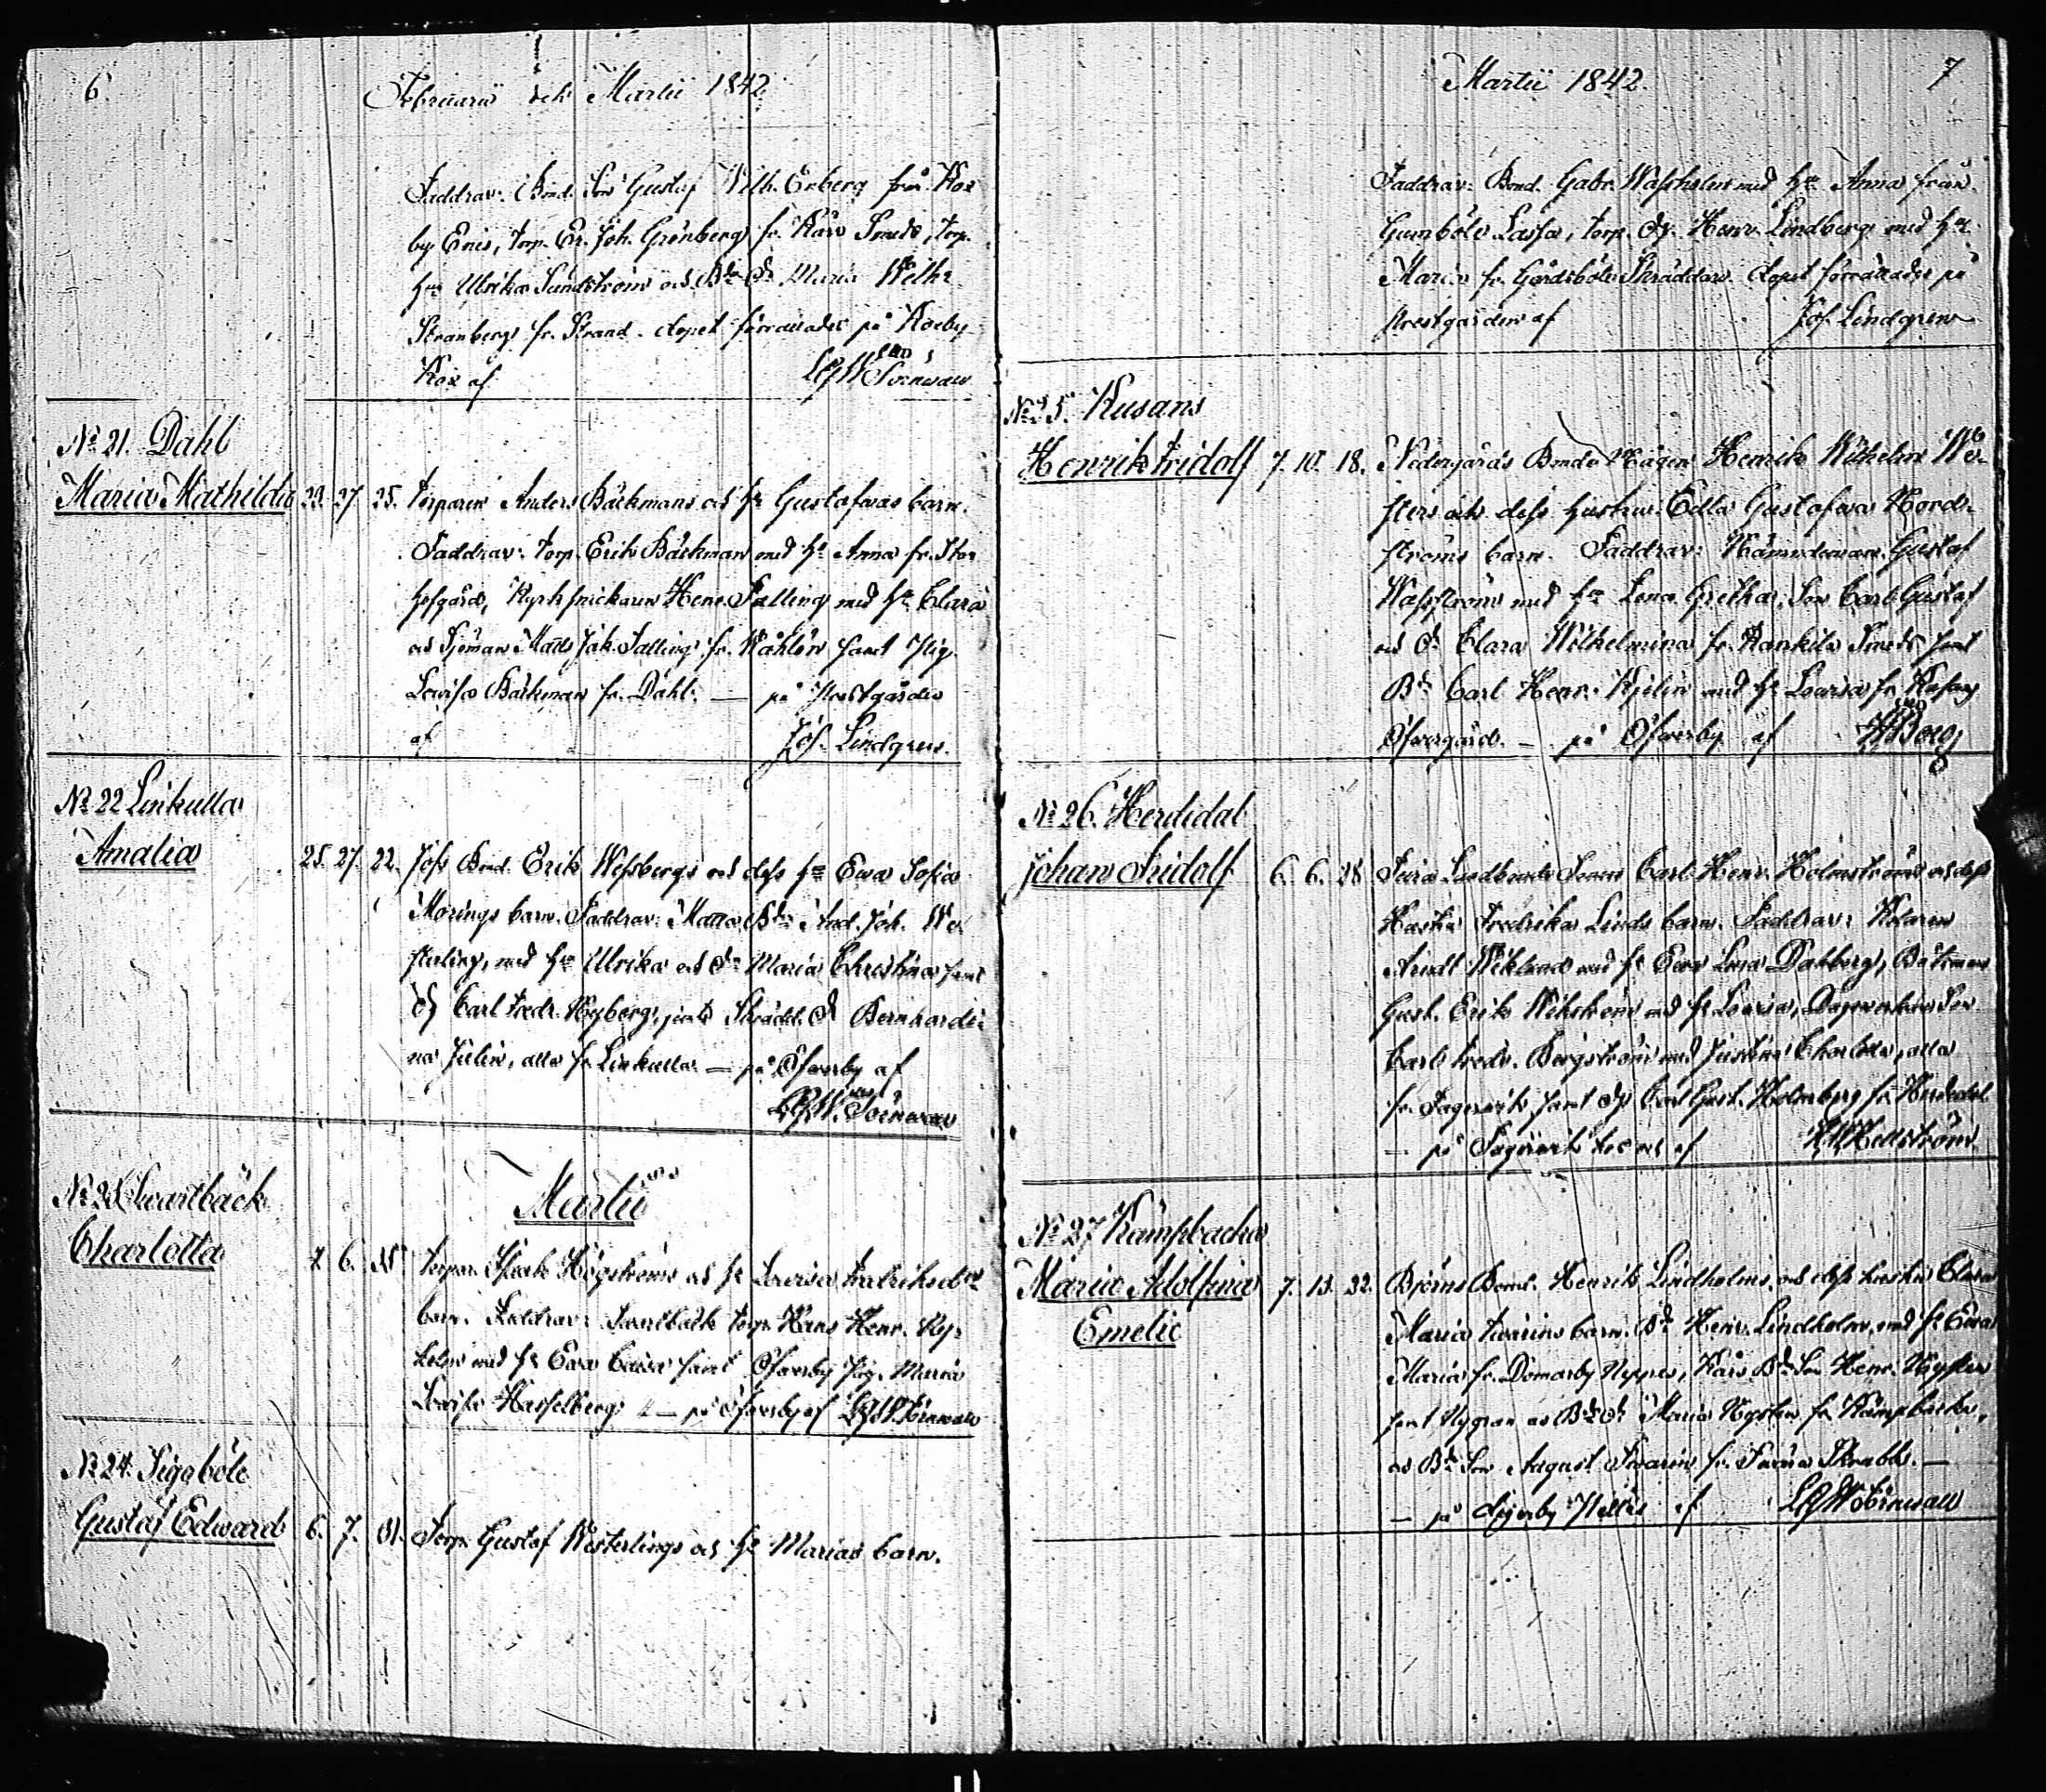 6.
Februarii och Martii 1842
Faddrar: Bond. Son Gustaf Wilh. Enberg från Kox
by Eris, Torp. Er. Joh. Grönberg fr. Smeds, Torp.
Hu Ulrika Sundström och Bds Dr Maria Wilh:
Stranberg fr. Strand. Dopet förrättades på Koxby
Kox af LGWTörnwall
No 21. Dahl
Maria Mathilda 23. 27. 25. Torparen Anders Bäckmans och Hu Gustafwas barn.
Faddrar: Torp. Erik Bäckman med Hu Anna fr. Stor
hofgård, Henr. Salling med Hu Clara
och Sjöman Matts Jak. Salling fr. samt Pig.
Lovisa Bäckman fr. Dahl. — på Prestgården
af Jos. Lindgren.
No 22 Linkulla
Amalia 25. 27. 22. Joss Bond. Erik Wessbergs och dess Hu Ewa Sofia
Morings barn. Faddrar: And. Joh. We-
sterling, med Hu Ulrika och Dr Maria Christina samt
Dg Carl Fredr. Nyberg, jemte Skrädd. D. Bernhardi-
na Julin, alla fr. Linkulla — på Öfverby af
LGW. Törnwall
Martii
No 23 Swartbäck
Charlotta 6. 35 Torpar. Isaak Högströms och Hu Lovisa Fredriksdrs
barn. Faddrar: Swartbäck Torp. Hans Henr.
med Hu Ewa Caisa samt Öfverby Pig. Maria
Lovisa Hasselberg. — på Öfverby af LGW.Törnwall
No 24. Sigaböle
Gustaf Edward 6. 7. 31. Torp. Gustaf Westerlings och Hu Marias barn.
Martii 1842.
7
Faddrar: Bond. Gabr. Wahlholm med Hu Anna från
Gumböle Lassa, Torp. Dg. Henr. Lindberg med Hu
Maria fr. Gårdsböle Skräddars. Dopet förrättades på
Prestgården af Jos. Lindgren
No 25. Kusans
Henrik Fridolf 7. 10. 18. Nedergårds Bonde Mågen Henrik Wilhelm We-
sters och dess hustru Edla Gustafwa Nord-
ströms barn. Faddrar: Nämndeman Gustaf
Wahlström med Hu Lena Gretha, Son Carl Gustaf
och Dr Clara Wilhelmina fr. Rankila Smeds samt
Bd Carl Henr. Kjelin med Hu Lovisa fr. Kusans
Öfvergård. — på Öfverby af HBorg
No 26. Herdidal
Johan Fridolf 6. 6. 28. Landbonde Sonen Carl Henr. Holmströms och dess
Hustru Fredrika Linds barn. Faddrar: Kolaren
Arndt Wiklund med Hu Ewa Lena Dahlberg, Båtsman
Gust. Erik Wikström med Hu Lovisa, Dagsverkaren Son
Carl Fredr. Bergström med Justina Charlotta, alla
fr. Fagervik samt Dg Carl Gust. Holmberg fr. Herdedal
— på Fagervik hos och af Hedström
No 27 Kämpbacka
Maria Adolfina 7. 13. 32. Björns Bond. Henrik Lindholms och dess hustru Clara
Emelie
Maria Swärins barn. Bd Henr. Lindholm, med Hu Ewa
Maria fr. Domarby Nygres, Kårs Bds Son Henr. Nysten
samt Nygran och Bds Dr Maria Nysten fr. Kämpbacka,
och Bds Son August Swärin fr. Skrabbs. —
— på Degerby af LGWTörnwall